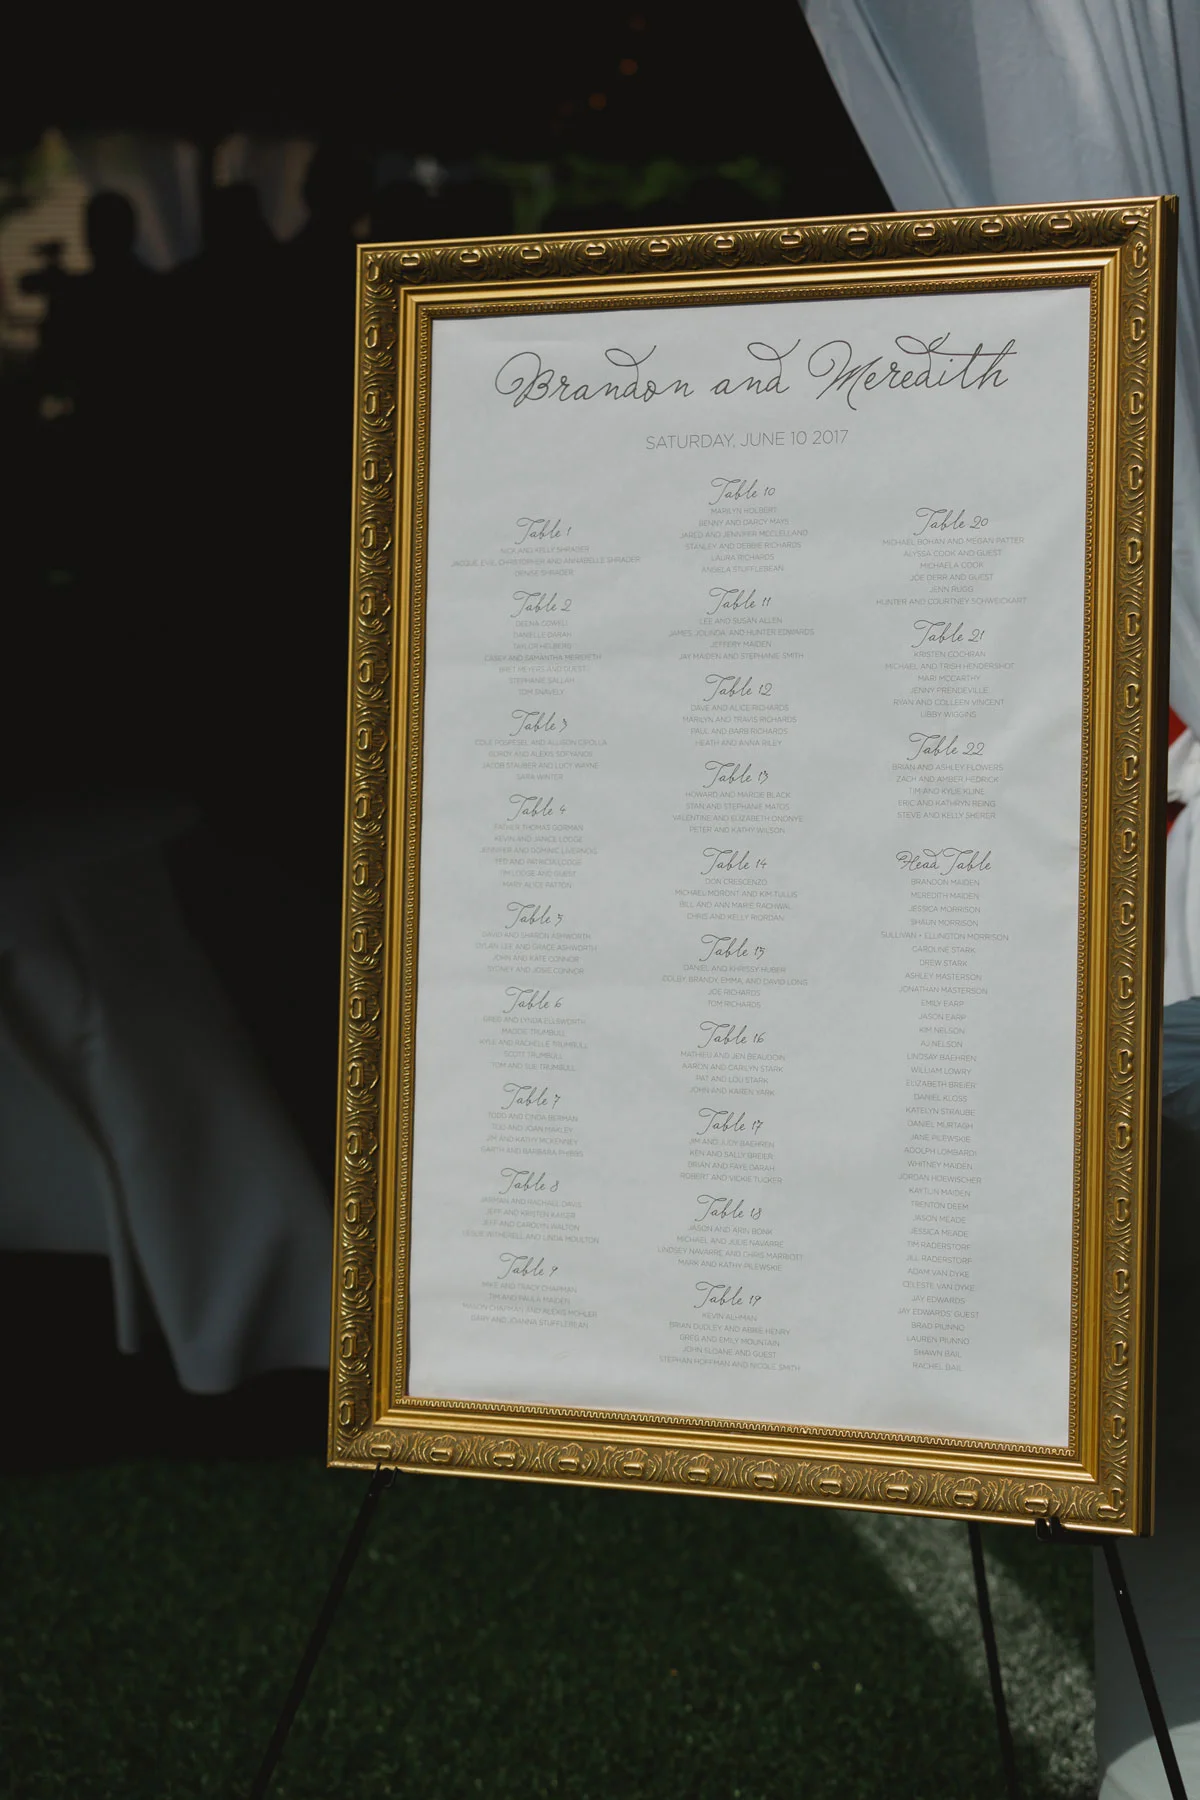 Brandon and Meredith
SATURDAY, JUNE 10 2017
Table 1
NICK AND KELLY SHRADER
JACQUE, EVIE, CHRISTOPHER AND ANNABELLE SHRADER
DENISE SHRADER
Table 2
DEENA COWELL
DANIELLE DARAH
TAYLOR HELBERG
CASEY AND SAMANTHA MERIDIETH
BRET MEYERS AND GUEST
STEPHANIE SALLAH
TOM SNAVELY
Table 3
COLE POSPESEL AND ALLISON CIPOLLA
GORDY AND ALEXIS SOFYANOS
JACOB STAUBER AND LUCY WAYNE
SARA WINTER
Table 4
FATHER THOMAS GORMAN
KEVIN AND JANICE LODGE
JENNIFER AND DOMINIC LIVERNOIS
TED AND PATRICIA LODGE
TIM LODGE AND GUEST
MARY ALICE PATTON
Table 5
DAVID AND SHARON ASHWORTH
DYLAN LEE AND GRACE ASHWORTH
JOHN AND KATE CONNOR
SIDNEY AND JOSIE CONNOR
Table 6
GREG AND LYNDA ELLSWORTH
MAGGIE TRUMBULL
KYLE AND RACHELLE TRUMBULL
SCOTT TRUMBULL
TOM AND SUE TRUMBULL
Table 7
TODD AND CINDA BERMAN
AND JOAN MAKLEY
JIM AND KATHY MCKENNEY
GARTH AND BARBARA PHIBBS
Table 8
JARMAN AND RACHAEL DAVIS
JEFF AND KRISTEN KAISER
JEFF AND CAROLYN WALTON
LESLIE WITHERELL AND LINDA MOULTON
Table 9
MIKE AND TRACY CHAPMAN
TIM AND PAULA MAIDEN
MASON CHAPMAN AND ALEXIS MOHLER
GARY AND JOANNA STUFFLEBEAN
Table 10
MARILYN HOLBERT
BENNY AND DARCY MAYS
JARED AND JENNIFER MCCLELLAND
STANLEY AND DEBBIE RICHARDS
LAURA RICHARDS
ANGELA STUFFLEBEAN
Table 11
LEE AND SUSAN ALLEN
JAMES, JOLINDA, AND HUNTER EDWARDS
JEFFERY MAIDEN
JAY MAIDEN AND STEPHANIE SMITH
Table 12
DAVE AND ALICE RICHARDS
MARILYN AND TRAVIS RICHARDS
PAUL AND BARB RICHARDS
HEATH AND ANNA RILEY
Table 13
HOWARD AND MARCIE BLACK
STAN AND STEPHANIE MATOS
VALENTINE AND ELIZABETH ONONYE
PETER AND KATHY WILSON
Table 14
DON CRESCENZO
MICHAEL MORONT AND KIM TULLIS
BILL AND ANN MARIE RACHWAL
CHRIS AND KELLY RIORDAN
Table 15
DANIEL AND KHRISSY HUBER
COLBY, BRANDY, EMMA, AND DAVID LONG
JOE RICHARDS
TOM RICHARDS
Table 16
MATHEW AND JEN BEAUDOIN
AARON AND CARILYN STARK
PAT AND LOU STARK
JOHN AND KAREN YARK
Table 17
JIM AND JUDY BAEHREN
KEN AND SALLY BREIER
BRIAN AND FAYE DARAH
ROBERT AND VICKIE TUCKER
Table 18
JASON AND ARIN BONK
MICHAEL AND JULIE NAVARRE
LINDSEY NAVARRE AND CHRIS MARRIOTT
MARK AND KATHY PILEWSKIE
Table 19
KEVIN ALHMAN
BRIAN DUDLEY AND ABBIE HENRY
GREG AND EMILY MOUNTAIN
JOHN SLOANE AND GUEST
STEPHAN HOFFMAN AND NICOLE SMITH
Table 20
MICHAEL BOHAN AND MEGAN PATTER
ALYSSA COOK AND GUEST
MICHAELA COOK
JOE DERR AND GUEST
JENN RUGG
HUNTER AND COURTNEY SCHWEICKART
Table 21
KRISTEN COCHRAN
MICHAEL AND TRISH HENDERSHOT
MARI MCCARTHY
JENNY PRENDEVILLE
RYAN AND COLLEEN VINCENT
LIBBY WIGGINS
Table 22
BRIAN AND ASHLEY FLOWERS
ZACH AND AMBER HEDRICK
TIM AND KYLIE KLINE
ERIC AND KATHRYN REING
STEVE AND KELLY SHERER
Head Table
BRANDON MAIDEN
MEREDITH MAIDEN
JESSICA MORRISON
SHAUN MORRISON
SULLIVAN + ELLINGTON MORRISON
CAROLINE STARK
DREW STARK
ASHLEY MASTERSON
JONATHAN MASTERSON
EMILY EARP
JASON EARP
KIM NELSON
AJ NELSON
LINDSAY BAEHREN
WILLIAM LOWRY
ELIZABETH BREIER
DANIEL KLOSS
KATELYN STRAUBE
DANIEL MURTAGH
JANE PILEWSKIE
ADOLPH LOMBARDI
WHITNEY MAIDEN
JORDAN HOEWISCHER
KAYTLIN MAIDEN
TRENTON DEEM
JASON MEADE
JESSICA MEADE
TIM RADERSTORF
JILL RADERSTORF
ADAM VAN DYKE
CELESTE VAN DYKE
JAY EDWARDS
JAY EDWARDS' GUEST
BRAD PIUNNO
LAUREN PIUNNO
SHAWN BAIL
RACHEL BAIL